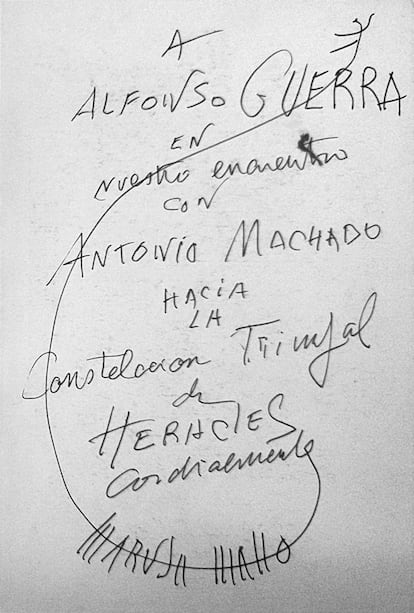 A
ALFONSO GUERRA
EN
nuestro encuentro
CON
ANTONIO MACHADO
HACIA
LA
Constelacion Triunfal
de
HERACLES
Cordialmente
MARUJA MALLO